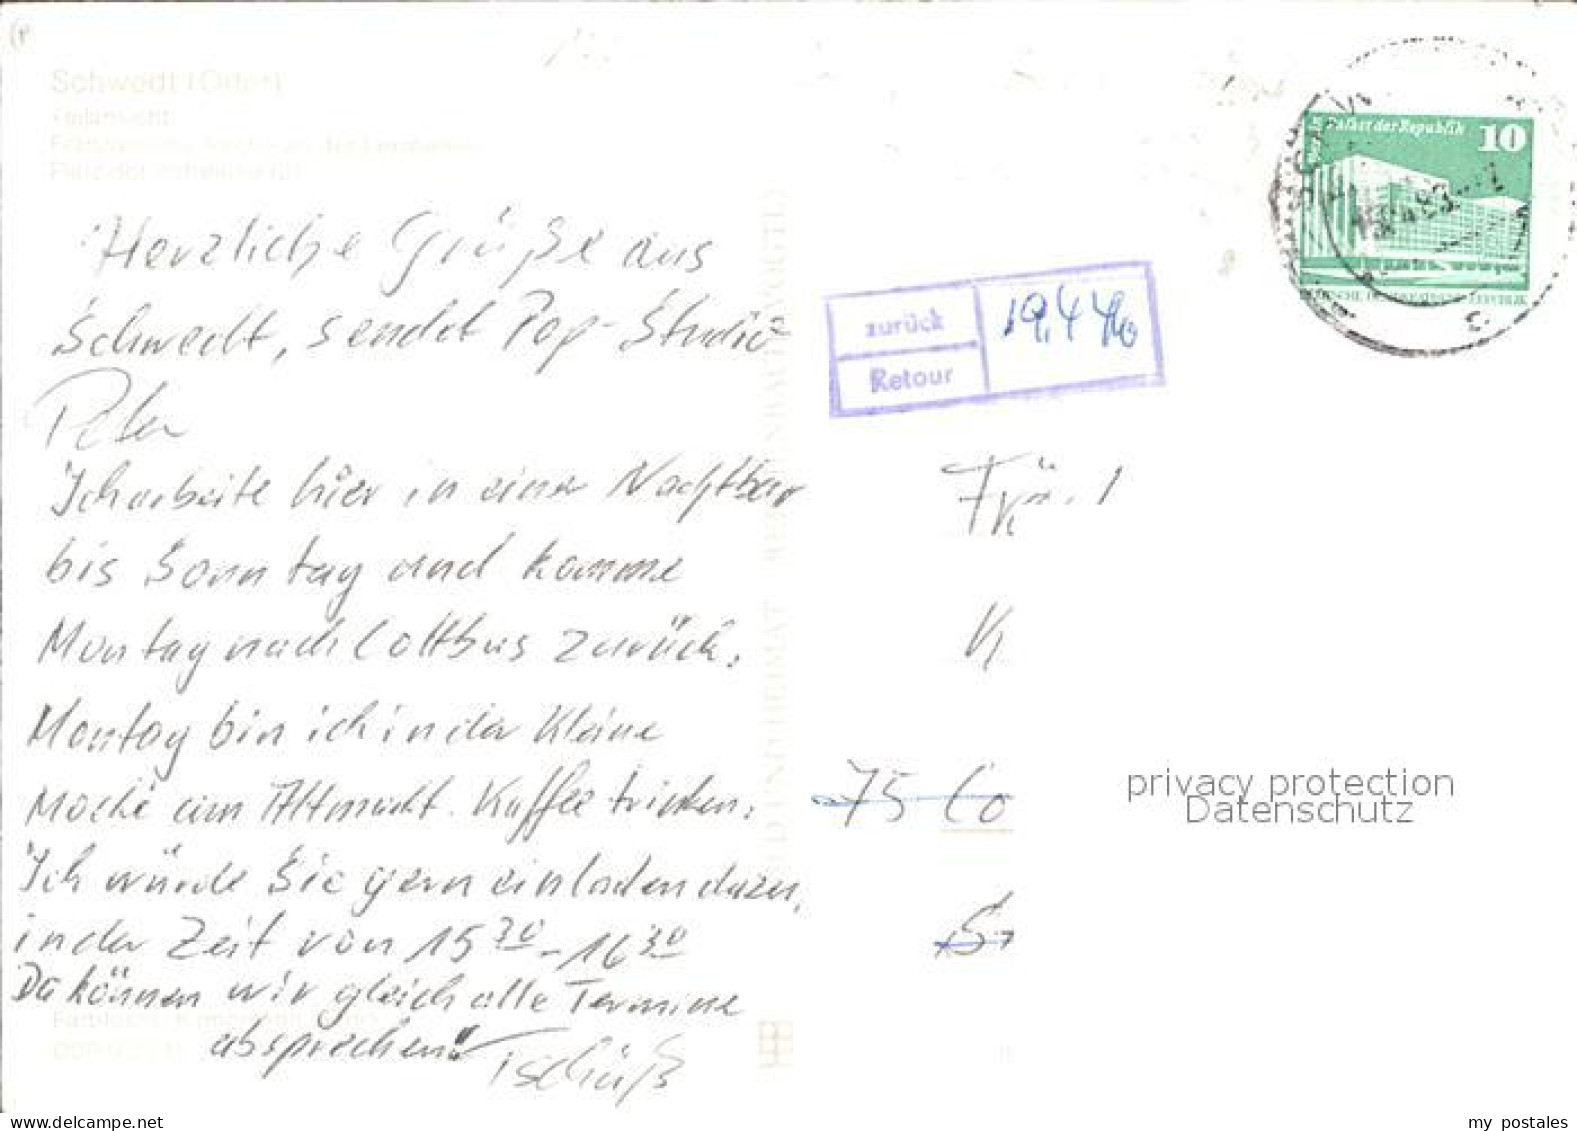 Schwedt (Oder)
Teilansicht
Herzliche Grüße aus
Schwedt, sendet Pop-Studio
Peter
Ich arbeite hier in einer Nachtbar
bis Sonntag und komme
Montag nach Cottbus zurück.
Montag bin ich in der Kleine
Mocke am Altmarkt. Kaffee trinken.
Ich würde Sie gern einladen dazu,
in der Zeit von 15 30 - 16 30
Da können wir gleich alle Termine
absprechen! Tschüß
BILD UND HEIMAT REICHENBACH (VOGTL)
Palast der Republik 10
zurück
Retour
19.4
Frl.
K
75 Co
privacy protection
Datenschutz
www.delcampe.net
my postales